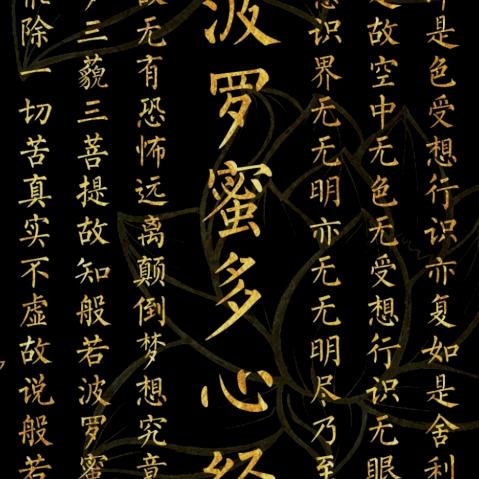 即是色受想行识亦复如是舍利
是故空中无色无受想行识无眼
意识界无无明亦无无明尽乃至
波罗蜜多心经
故无有恐怖远离颠倒梦想究竟
多三藐三菩提故知般若波罗蜜
能除一切苦真实不虚故说般若